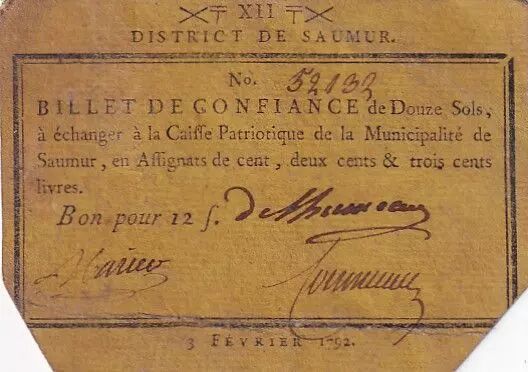 XII
DISTRICT DE SAUMUR.
No. 52132
BILLET DE CONFIANCE de Douze Sols,
à échanger à la Caisse Patriotique de la Municipalité de
Saumur, en Assignats de cent, deux cents & trois cents
livres.
Bon pour 12 ſ.
3 FÉVRIER 1792.